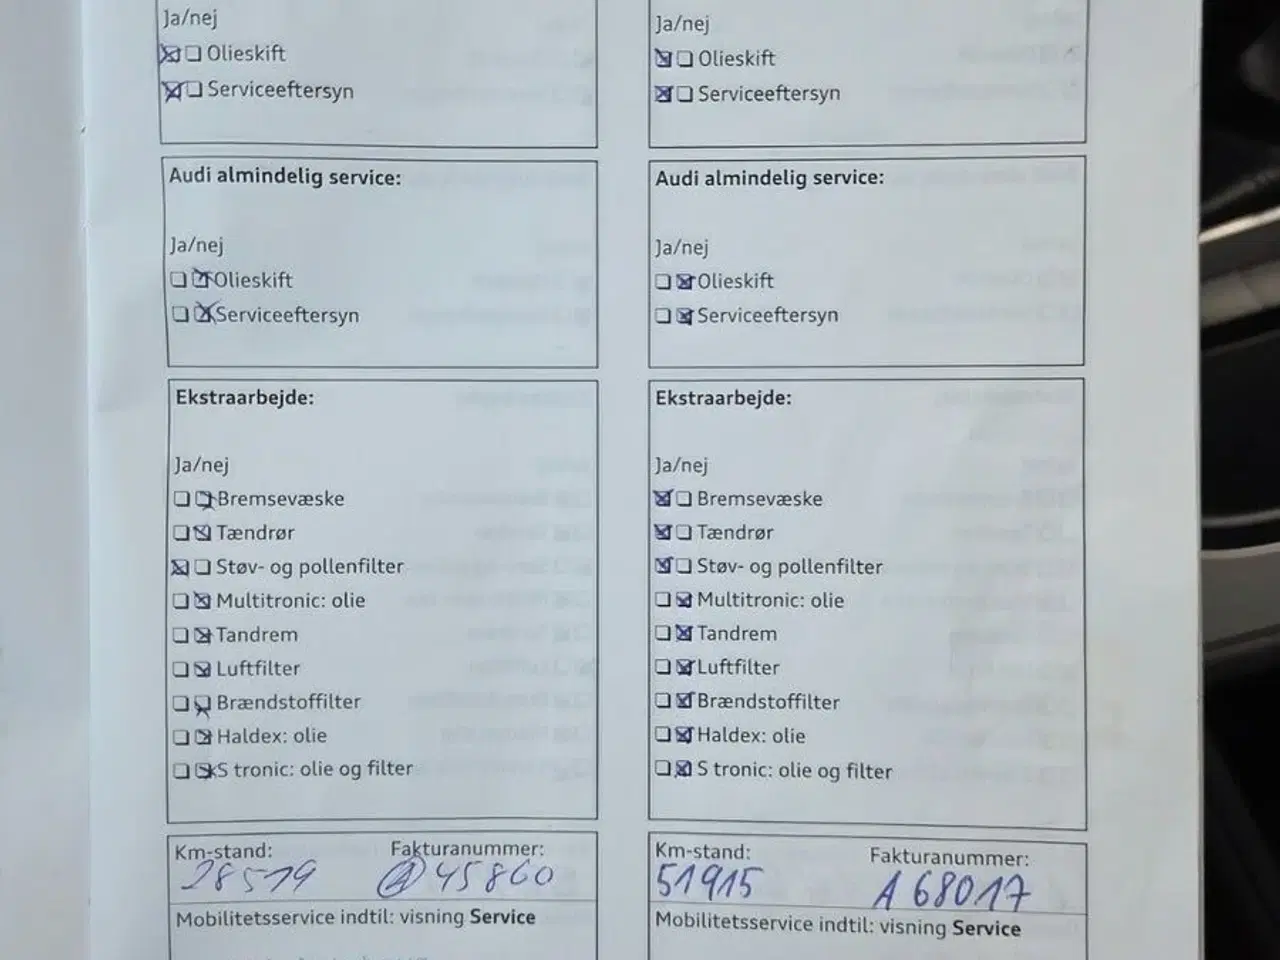 Ja/nej
Olieskift
Serviceeftersyn
Audi almindelig service:
Ja/nej
Olieskift
Serviceeftersyn
Ekstraarbejde:
Ja/nej
Bremsevæske
Tændrør
Støv- og pollenfilter
Multitronic: olie
Tandrem
Luftfilter
Brændstoffilter
Haldex: olie
S tronic: olie og filter
Km-stand: Fakturanummer:
28519 A 45860
Mobilitetsservice indtil: visning Service
Ja/nej
Olieskift
Serviceeftersyn
Audi almindelig service:
Ja/nej
Olieskift
Serviceeftersyn
Ekstraarbejde:
Ja/nej
Bremsevæske
Tændrør
Støv- og pollenfilter
Multitronic: olie
Tandrem
Luftfilter
Brændstoffilter
Haldex: olie
S tronic: olie og filter
Km-stand: Fakturanummer:
51915 A 68017
Mobilitetsservice indtil: visning Service